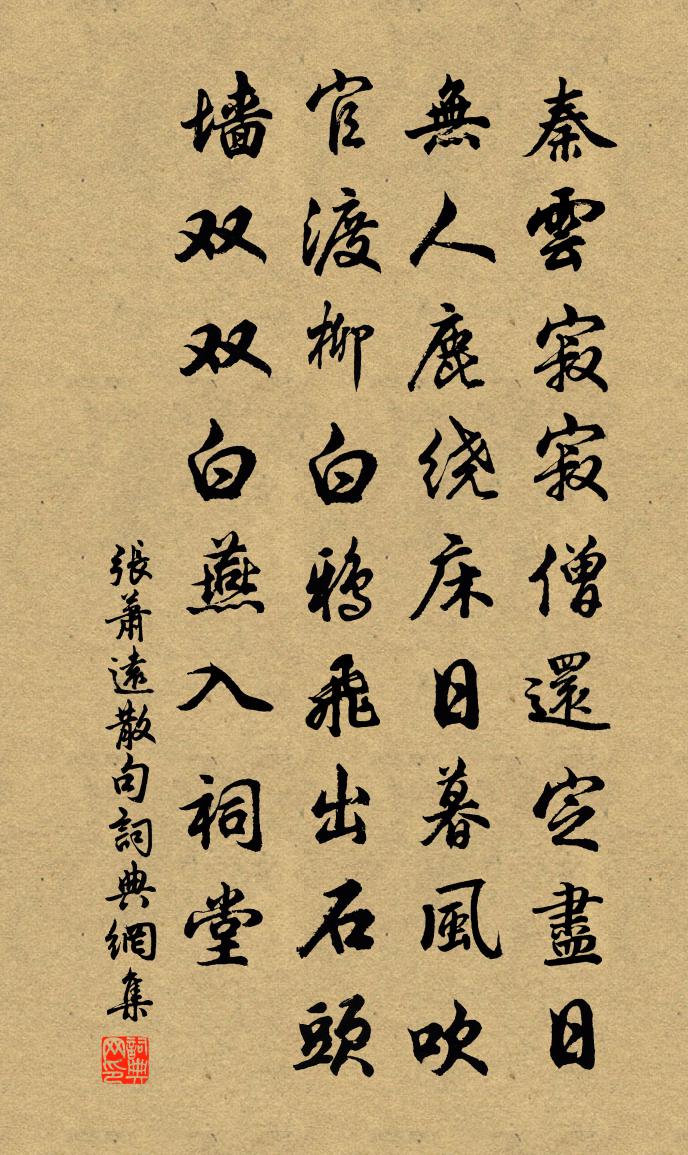 秦雲寂寂僧還定盡日
無人鹿绕床日暮風吹
官渡柳白鴉飛出石頭
墙双双白燕入祠堂
張蕭遠散句詞典網集
詞典网印